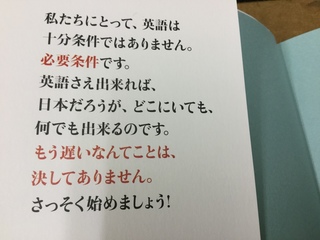 私たちにとって、英語は
十分条件ではありません。
必要条件です。
英語さえ出来れば、
日本だろうが、どこにいても、
何でも出来るのです。
もう遅いなんてことは、
決してありません。
さっそく始めましょう!